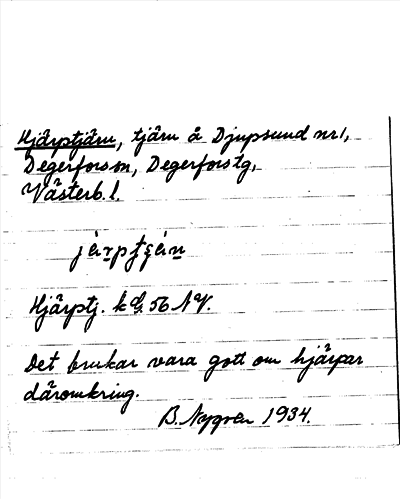 Hjärptjärn, tjärn å Djupsund nr 1,
Degerfors sn, Degerfors tg,
Västerb. l.
Hjärptj. k 56 NV.
Det brukar vara gott om hjärpar
däromkring.
B. Nygren 1934.